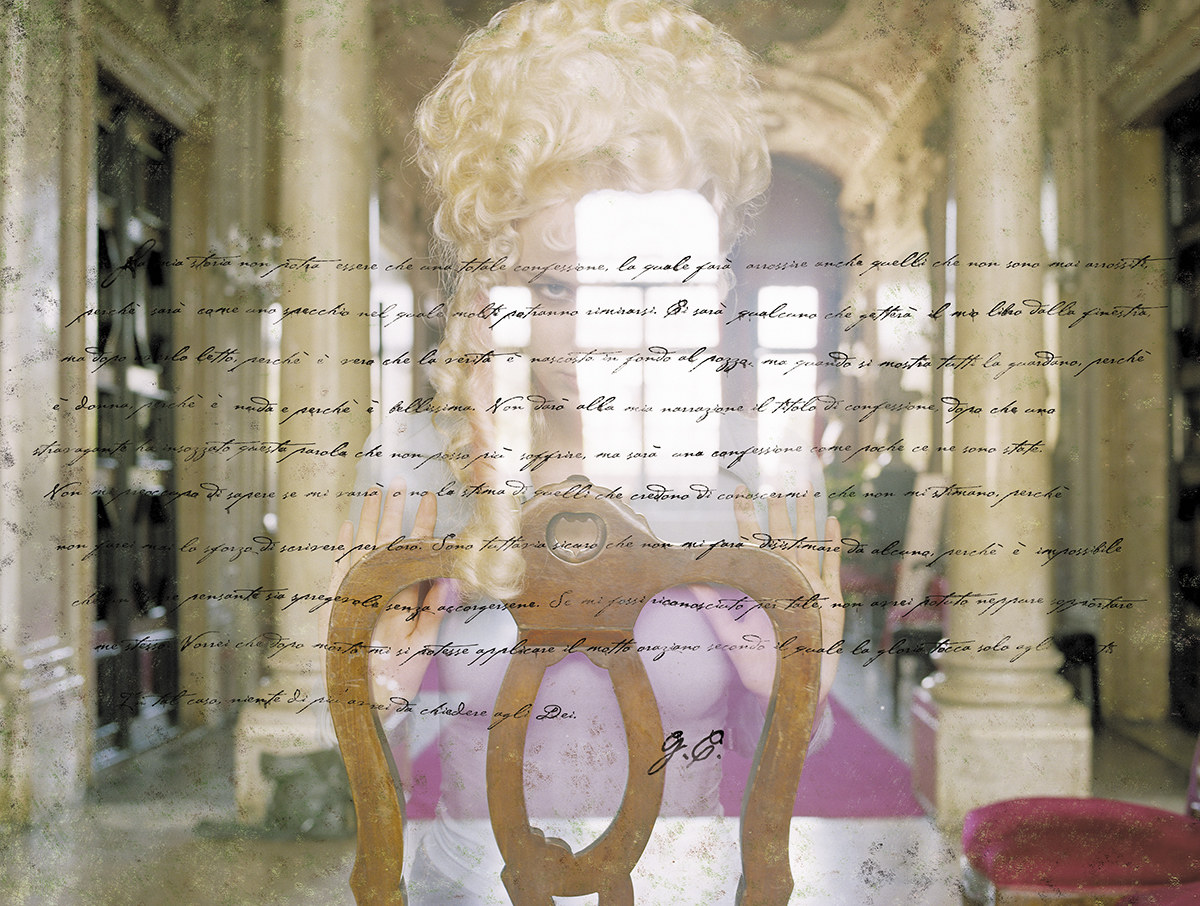 La mia storia non potrà essere che una totale confessione, la quale farà arrossire anche quelli che non sono mai arrossiti,
perchè sarà come uno specchio nel quale molti potranno rimirarsi. Ci sarà qualcuno che getterà il mio libro dalla finestra
ma dopo averlo letto, perchè è vero che la verità è nascosta in fondo al pozzo, ma quando si mostra tutti la guardano, perchè
è donna, perchè è nuda e perchè è bellissima. Non darò alla mia narrazione il titolo di confessione, dopo che uno
stravagante ha insozzato questa parola che non posso più soffrire, ma sarà una confessione come poche ce ne sono state.
Non mi preoccupo di sapere se mi varrà o no la stima di quelli che credono di conoscermi e che non mi stimano, perchè
non farei mai lo sforzo di scrivere per loro. Sono tuttavia sicuro che non mi farà disistimare da alcuno, perchè è impossibile
che un essere pensante sia spregevole senza accorgersene. Se mi fossi riconosciuto per tale, non avrei potuto neppure sopportare
me stesso. Vorrei che dopo morto mi si potesse applicare il motto oraziano secondo il quale la gloria tocca solo agli
In tal caso, niente di più avrei da chiedere agli Dei.
G.C.